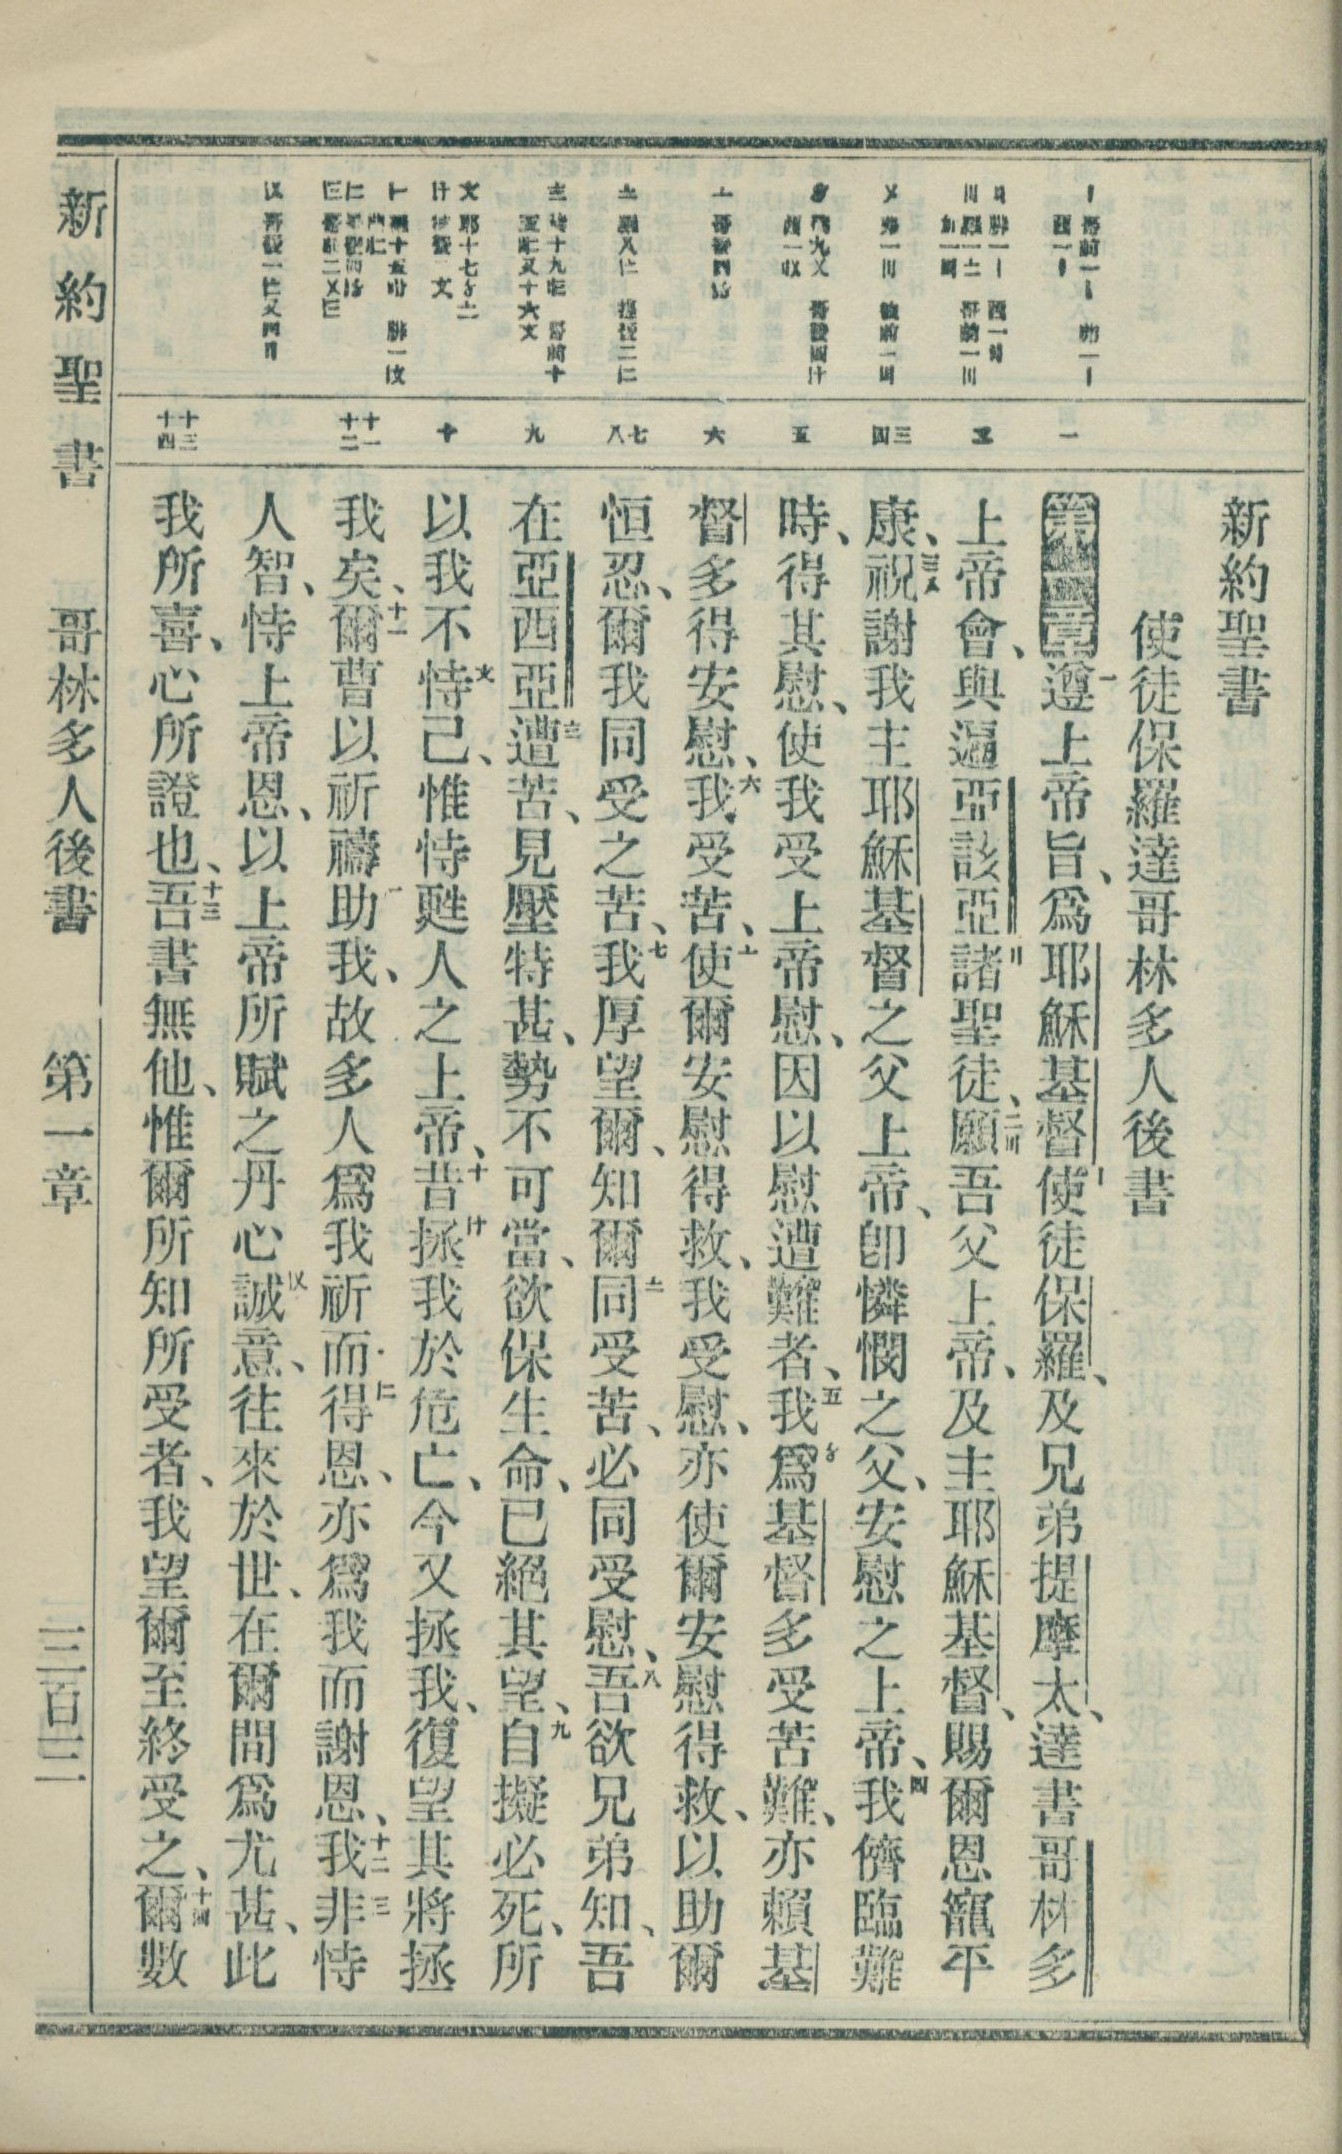 新約聖書
使徒保羅達哥林多人後書
第一章 一遵上帝旨、爲耶穌基督使徒保羅、及兄弟提摩太、達書哥林多
上帝會、與遍亞該亞諸聖徒、二願吾父上帝、及主耶穌基督、賜爾恩寵平
康、三祝謝我主耶穌基督之父上帝、卽憐憫之父、安慰之上帝、四我儕臨難
時、得其慰、使我受上帝慰、因以慰遭難者、五我爲基督多受苦難、亦賴基
督多得安慰、六我受苦、使爾安慰得救、我受慰、亦使爾安慰得救、以助爾
恒忍、爾我同受之苦、七我厚望爾、知爾同受苦、必同受慰、八吾欲兄弟知、吾
在亞西亞遭苦、見壓特甚、勢不可當、欲保生命、已絕其望、九自擬必死、所
以我不恃己、惟恃甦人之上帝、十昔拯我於危亡、今又拯我、復望其將拯
我矣、十一爾曹以祈禱助我、故多人爲我祈而得恩、亦爲我而謝恩、十二我非恃
人智、恃上帝恩、以上帝所賦之丹心誠意、往來於世、在爾間爲尤甚、此
我所喜、心所證也、十三吾書無他、惟爾所知所受者、我望爾至終受之、十四爾數
一
二
三
四
五
六
七
八
九
十
十一
十二
十三
十四
新約聖書 哥林多人後書 第一章 三百三